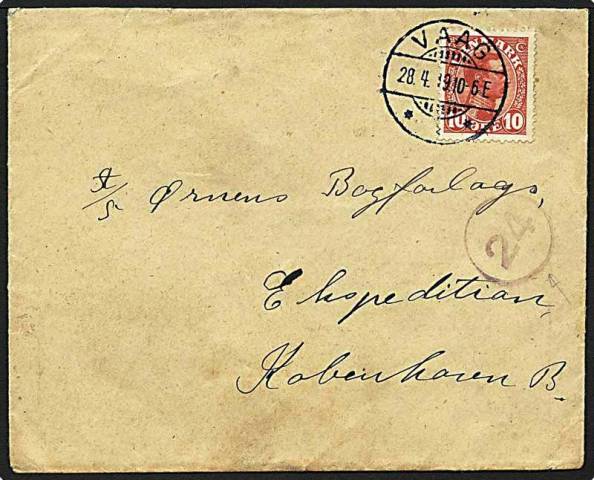 VAAG
28.4.19 10-6 E
DANMARK
10 ØRE 10
A/S Ørnens Bogforlags,
24
Ekspedition,
København B